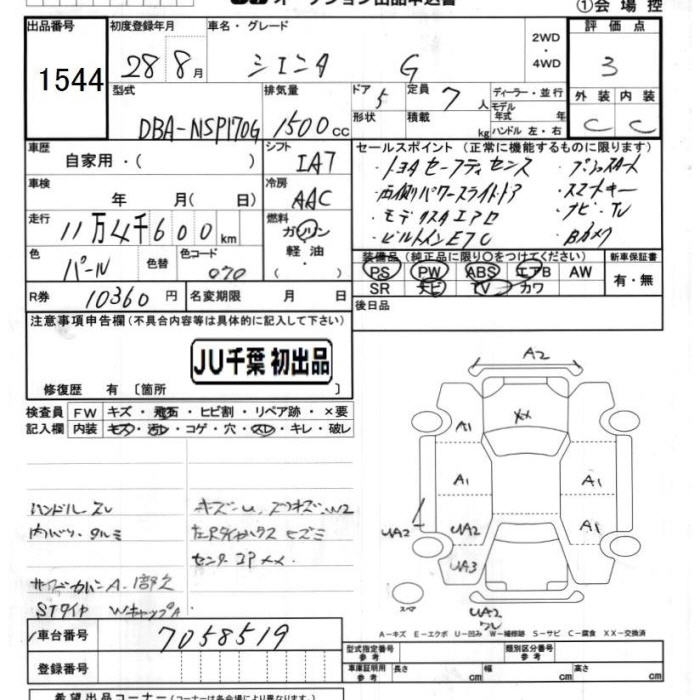 オークション出品申込書 ①会場控
出品番号 初度登録年月 車名・グレード 2WD ・ 4WD 評価点
1544 28年 8月 シエンタ G 3
型式 排気量 ドア 5 定員 7人 ディーラー・並行 外装 内装
DBA-NSP170G 1500cc 形状 積載 kg モデル年式 年式 ハンドル 左・右 C C
車歴 自家用・( ) シフト IAT セールスポイント (正常に機能するものに限ります)
・トヨタセーフティセンス ・プッシュスタート
車検 年 月( 日) 冷房 AAC ・両側パワースライドドア ・スマートキー
走行 11万4千600km 燃料 ガソリン ・モデリスタエアロ ・ナビ・TV
軽油・ ( ) ・ビルトインETC ・Bカメラ
色 パール 色替 色コード 070 装備品 (純正品に限り○をつけてください) 新車保証書
PS PW ABS エアB AW 有・無
R券 10360円 名変期限 月 日 SR ナビ TV カワ
注意事項申告欄 (不具合内容等は具体的に記入して下さい) 後日品
JU千葉 初出品
修復歴 有 〔箇所 〕
検査員 FW キズ・飛石・ヒビ割・リペア跡・×要
記入欄 内装 キズ・汚レ・コゲ・穴・スレ・キレ・破レ
A2
A1 XX
A1 A1
UA2 UA2 A1
UA3
スペア UA2
ハンドルスレ キズ・U、スリキズ、W2
内バリ・タルミ
センターコアXX
STタイヤ WキャップA
A-キズ E-エクボ U-凹み W-補修跡 S-サビ C-腐食 XX-交換済
車台番号 7058519
登録番号
型式指定番号 参考 類別区分番号 参考
車庫証明用 参考 長さ cm 幅 cm 高さ cm
希望出品コーナー (コーナーは各会場により異なります)